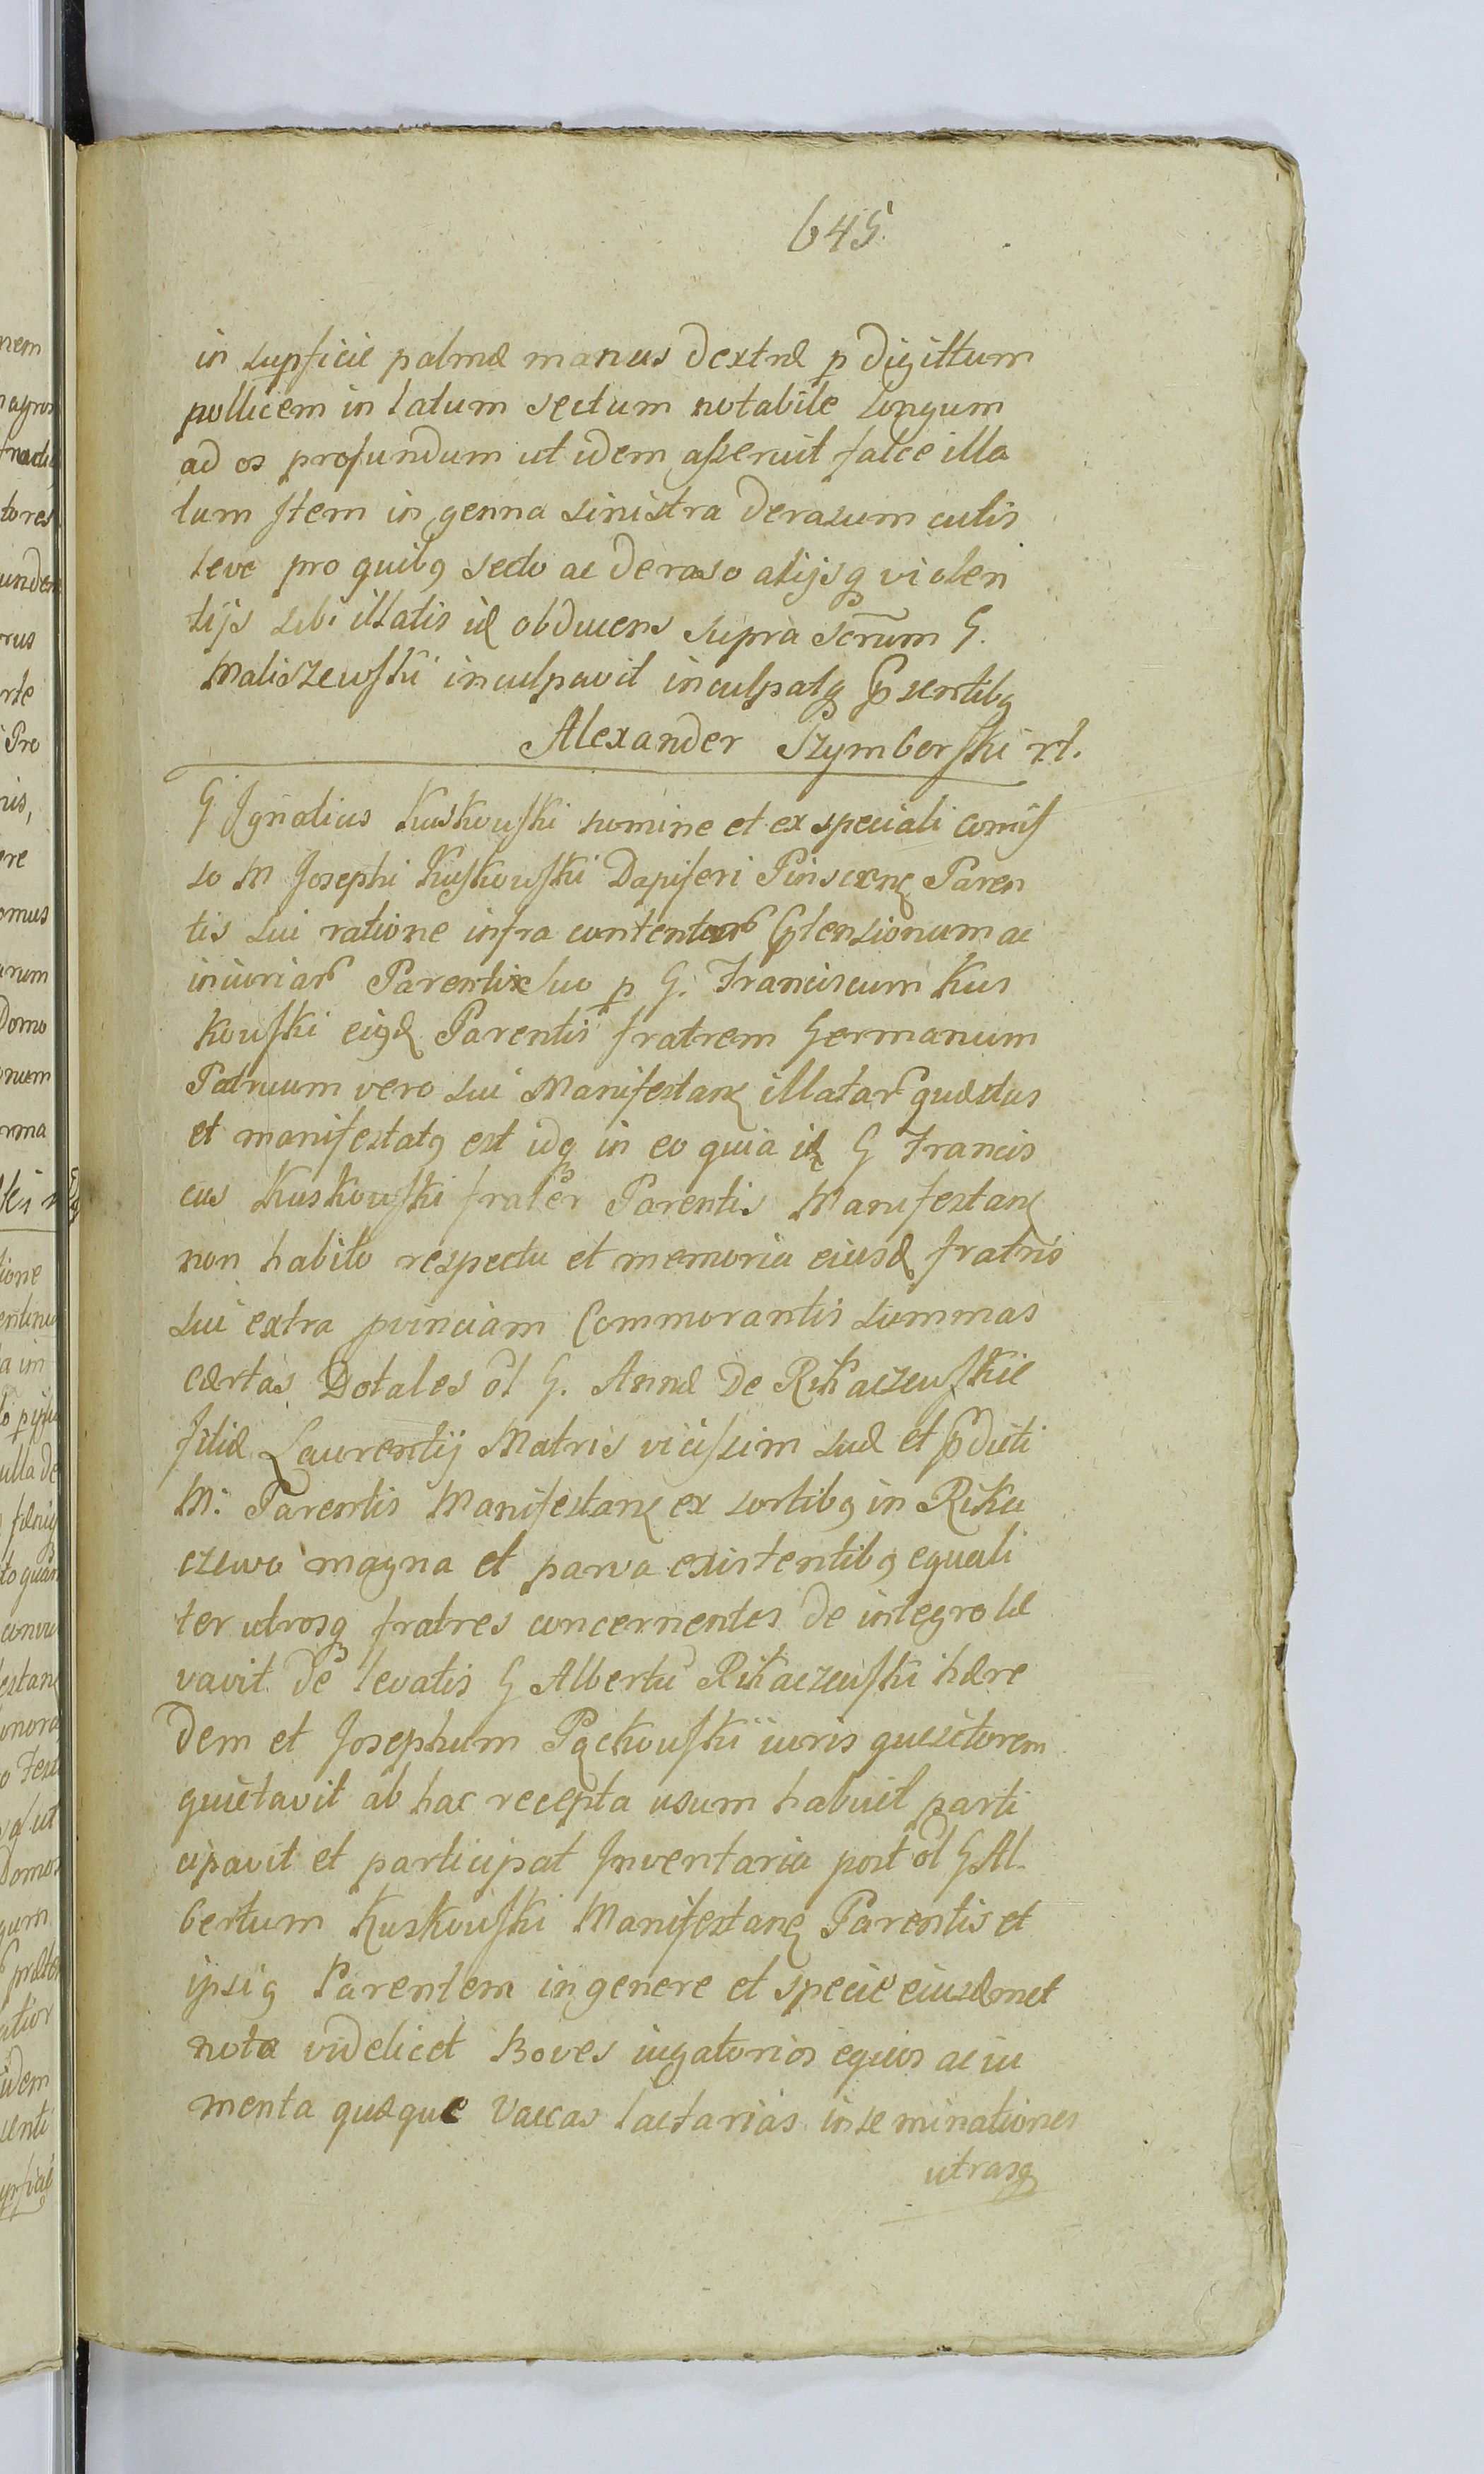 645.
in supficie palmæ manus dextræ p digittum
pollicem in latum sectum notabile longum
ad os profundum ut idem asseruit falce illa
tum Item in genna sinistra derasum cutis
leve pro quibq secto ac deraso alijsq violen
tijs sibi illatis id obducens supra scrum G.
Maliszewski inculpavit inculpatq psentibq
Alexander Szymborski rt.
G Ignatius Kuskowski nomine et ex speciali comis
so M Josephi Kuskowski Dapiferi Pinscens Paren
tis sui ratione infra contentar ptensionum ac
iniuriar Parentixsuo p G. Franciscum Kus
kowski eiqd Parentis fratrem Germanum
Patruum vero sui Manifestans illatar quæstus
et manifestatq est idq in eo quia id G Francis
cus Kuskowski frater Parentis Manifestans
non habito respectu et memoria eiusd fratris
sui extra pvinciam Commorantis summas
certas Dotales ol G. Annæ de Rikaczewskie
filiæ Laurentij Matris vicissim suæ et pdicti
M. Parentis Manifestans ex sortibq in Rika
czewo magna et parva existentibq equali
ter utrosq fratres concernentes de integro le
vavit de levatis G Albertu Rikaczewski hære
dem et Josephum Pąckowskii iuris quesitorem
quietavit ab hac recepta usum habuit parti
cipavit et participat Inventaria post ol G Al-
bertum Kuskowski Manifestans Parentis et
ipsiq Parentem in genere et specie eiusdmet
nota videlicet Boves iugatorios equos ac iu
menta quæque Vaccas lactarias inseminationes
utrasq
nem
tores
rus
rte
Pre
nis,
ere
omus
arum
Domo
onum
rma
ione
idem
senti